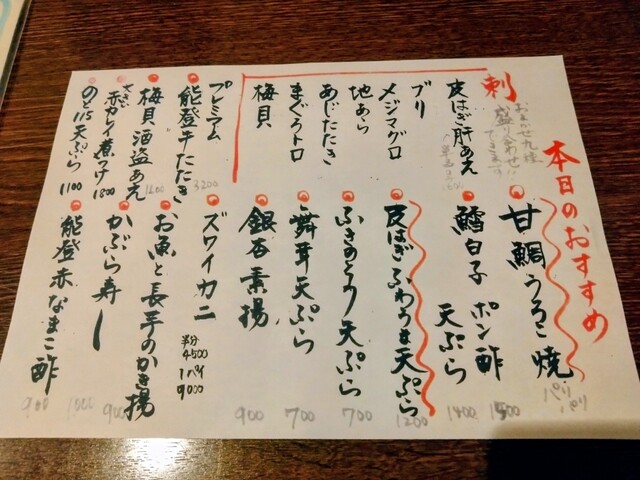 本日のおすすめ
刺
おまかせ九種
盛り合わせ!!
できます
皮はぎ肝あえ
ブリ
メジマグロ
地あら
あじたたき
まぐろトロ
梅貝
プレミアム
能登牛たたき
3200
梅貝 酒盗あえ
1200
赤カレイ煮つけ
1800
のと115天ぷら
1100
甘鯛うろこ焼
パリパリ
1500
鱈白子 ポン酢
天ぷら
1400
皮はぎふわうま天ぷら
1200
ふきのとう天ぷら
700
舞茸天ぷら
700
銀杏素揚
900
ズワイカニ
半分
4500
1パイ
9000
お魚と長芋のかき揚
900
かぶら寿し
1000
能登赤なまこ酢
900